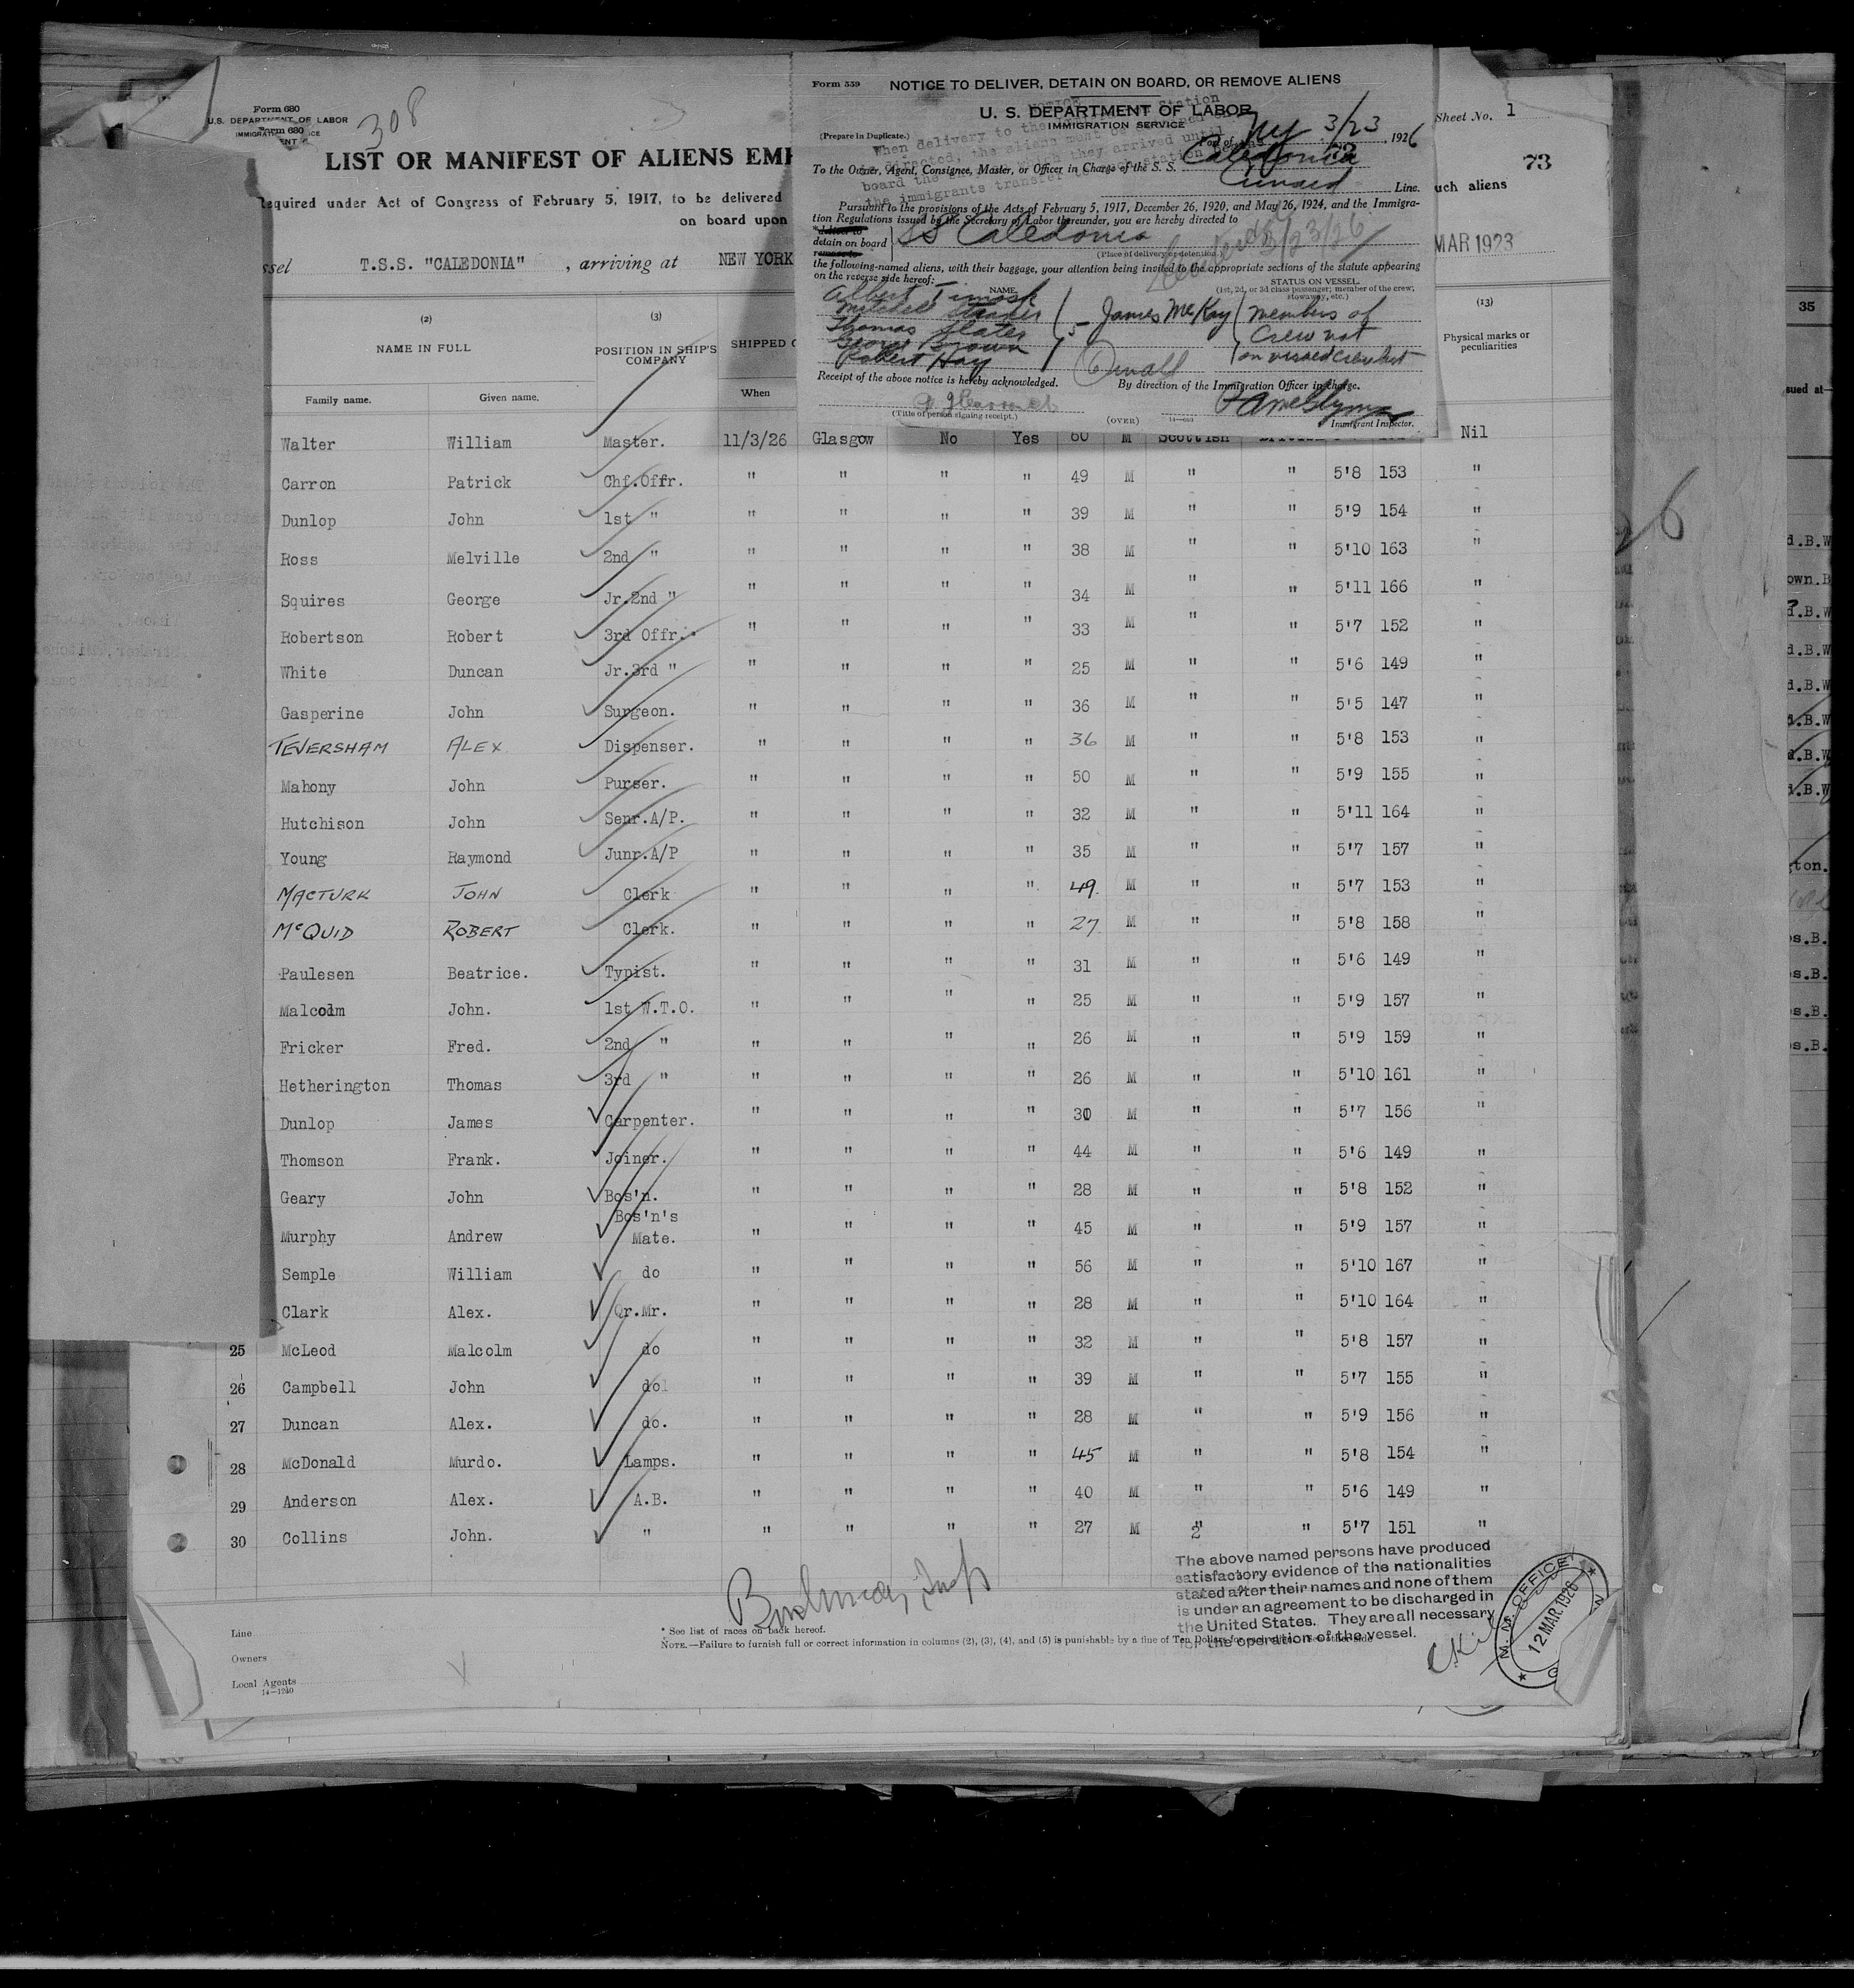 Form 680
U. S. DEPARTMENT OF LABOR
Form 680
308
LIST OR MANIFEST OF ALIENS
Required under Act of Congress of February 5, 1917, to be delivered
on board upon
T.S.S. "CALEDONIA" , arriving at NEW YORK
Form 559 NOTICE TO DELIVER, DETAIN ON BOARD, OR REMOVE ALIENS
U. S. DEPARTMENT OF LABOR
IMMIGRATION SERVICE
(Prepare in Duplicate.)
Port of NY 3/23, 1926
To the Owner, Agent, Consignee, Master, or Officer in Charge of the S. S. Caledonia
Cunard Line.
Pursuant to the provisions of the Acts of February 5, 1917, December 26, 1920, and May 26, 1924, and the Immigra-
tion Regulations issued by the Secretary of Labor thereunder, you are hereby directed to
deliver to
detain on board SS Caledonia
remove to
(Place of delivery or detention.)
3/23/26
the following-named aliens, with their baggage, your attention being invited to the appropriate sections of the statute appearing
on the reverse side hereof:
NAME. STATUS ON VESSEL
(1st, 2d, or 3d class passenger; member of the crew; stowaway, etc.)
Albert Timosk
Mitchell Straker
Thomas Slater
George Brown
Robert Hay
5 - James McKay
members of
Crew not
on visaed crew list
Receipt of the above notice is hereby acknowledged. By direction of the Immigration Officer in charge.
(Title of person signing receipt.) (OVER) Immigrant Inspector.
Sheet No. 1
73
such aliens
MAR 1923
35
(2) (3) (13)
NAME IN FULL POSITION IN SHIP'S COMPANY SHIPPED Physical marks or peculiarities
Family name. Given name. When
Walter William Master. 11/3/26 Glasgow No Yes 60 M Scottish Nil
Carron Patrick Chf.Offr. " " " " 49 M " " 5'8 153 "
Dunlop John 1st " " " " " 39 M " " 5'9 154 "
Ross Melville 2nd " " " " " 38 M " " 5'10 163 "
Squires George Jr.2nd " " " " " 34 M " " 5'11 166 "
Robertson Robert 3rd Offr. " " " " 33 M " " 5'7 152 "
White Duncan Jr.3rd " " " " " 25 M " " 5'6 149 "
Gasperine John Surgeon. " " " " 36 M " " 5'5 147 "
TEVERSHAM ALEX Dispenser. " " " " 36 M " " 5'8 153 "
Mahony John Purser. " " " " 50 M " " 5'9 155 "
Hutchison John Senr.A/P. " " " " 32 M " " 5'11 164 "
Young Raymond Junr.A/P " " " " 35 M " " 5'7 157 "
MACTURK JOHN Clerk " " " " 49. M " " 5'7 153 "
McQUID ROBERT Clerk. " " " " 27 M " " 5'8 158 "
Paulesen Beatrice. Typist. " " " " 31 M " " 5'6 149 "
Malcolm John. 1st W.T.O. " " " " 25 M " " 5'9 157 "
Fricker Fred. 2nd " " " " " 26 M " " 5'9 159 "
Hetherington Thomas 3rd " " " " " 26 M " " 5'10 161 "
Dunlop James Carpenter. " " " " 30 M " " 5'7 156 "
Thomson Frank. Joiner. " " " " 44 M " " 5'6 149 "
Geary John Bos'n. " " " " 28 M " " 5'8 152 "
Murphy Andrew Bos'n's Mate. " " " " 45 M " " 5'9 157 "
Semple William do " " " " 56 M " " 5'10 167 "
Clark Alex. Qr.Mr. " " " " 28 M " " 5'10 164 "
25 McLeod Malcolm do " " " " 32 M " " 5'8 157 "
26 Campbell John do " " " " 39 M " " 5'7 155 "
27 Duncan Alex. do. " " " " 28 M " " 5'9 156 "
28 McDonald Murdo. Lamps. " " " " 45 M " " 5'8 154 "
29 Anderson Alex. A.B. " " " " 40 M " " 5'6 149 "
30 Collins John. " " " " " 27 M " " 5'7 151 "
The above named persons have produced
satisfactory evidence of the nationalities
stated after their names and none of them
is under an agreement to be discharged in
the United States. They are all necessary
for the operation of the vessel.
Line
Owners
Local Agents
14—1240
* See list of races on back hereof.
NOTE.—Failure to furnish full or correct information in columns (2), (3), (4), and (5) is punishable by a fine of Ten Dollars
M. M. OFFICE
12 MAR. 1926